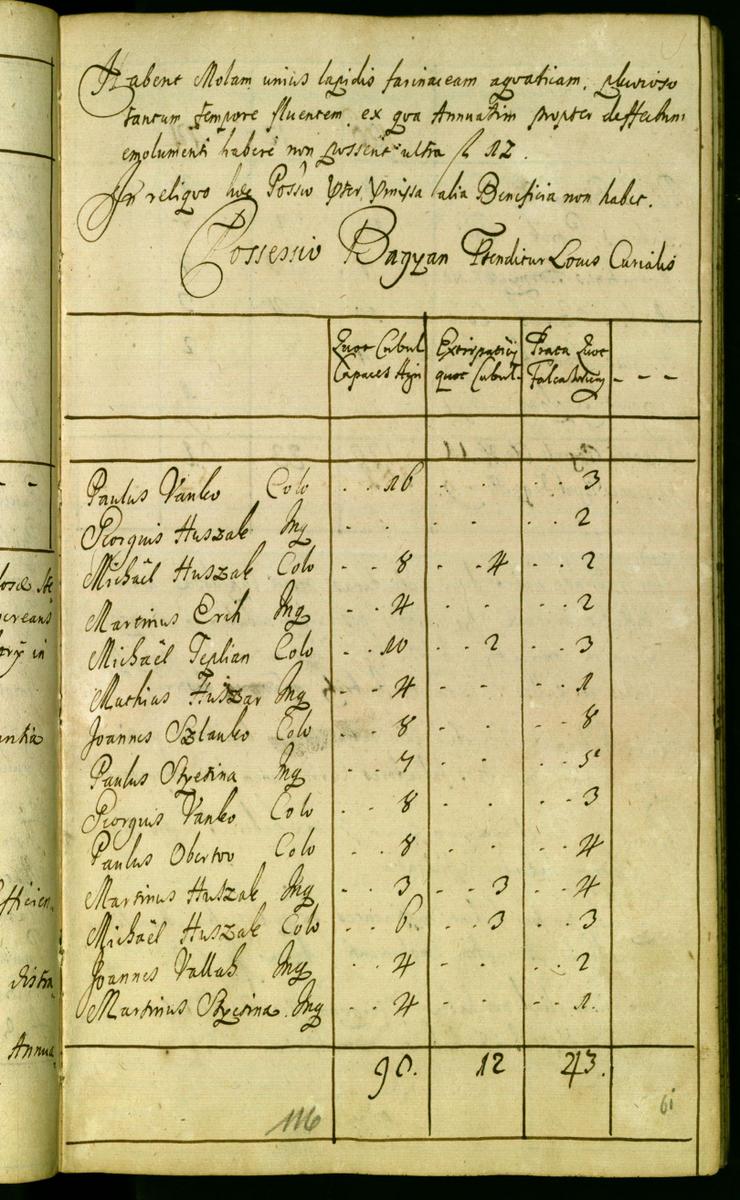 Habent Molam unius lapidis farinaceam aquaticam, pluvioso
tantum tempore fluentem, ex qua Annuatim propter deffectum
emolumenti habere non possent ultra f 12.
In reliquo hæc Possio Pter Pmissa alia Beneficia non habet.
Possessio Bagyan Ptenditur Locus Curialis
Quot Cubul Extirpaticij Prata Quot
Capaces Agri quot Cubul. Falcatorum - - -
Paulus Vanko Colo - - 16 - - - - 3
Georgius Huszak Inq - - - - - - 2
Michaël Huszak Colo - - 8 - - 4 - - 2
Martinus Erik Inq - - 4 - - - - 2
Michaël Teplian Colo - - 10 - - 2 - - 3
Mathias Huszar Inq - - 4 - - - - 1
Joannes Szlanko Colo - - 8 - - - - 8
Paulus Inq - - 7 - - - - 5
Georgius Vanko Colo - - 8 - - - - 3
Paulus Obertov Colo - - 8 - - - - 4
Martinus Huszak Inq - - 3 - - 3 - - 4
Michaël Huszak Colo - - 6 - - 3 - - 3
Joannes Vallah Inq - - 4 - - - - 2
Martinus Inq - - 4 - - - - 1.
90. 12 43.
116
61